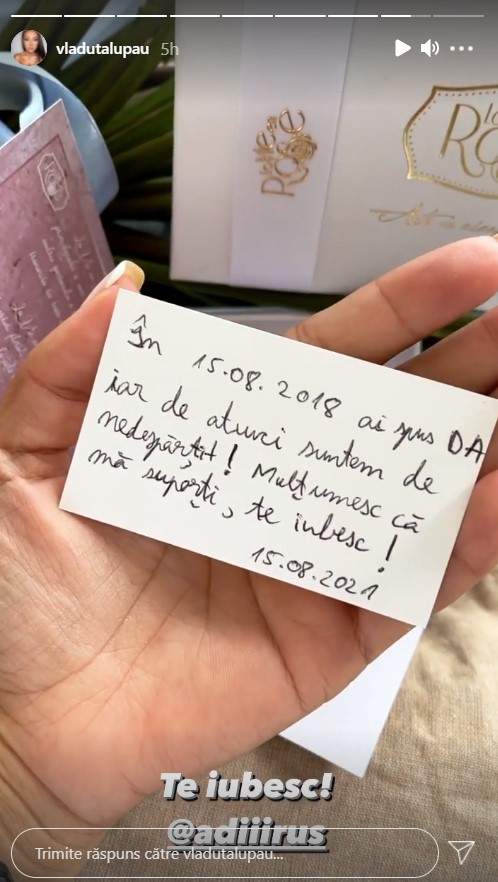 vladutalupau 5h
Rose
În 15.08.2018 ai spus DA
iar de atunci suntem de
nedespărțit! Mulțumesc că
mă suporți, te iubesc!
15.08.2021
Te iubesc!
@adiiirus
Trimite răspuns către vladutalupau...